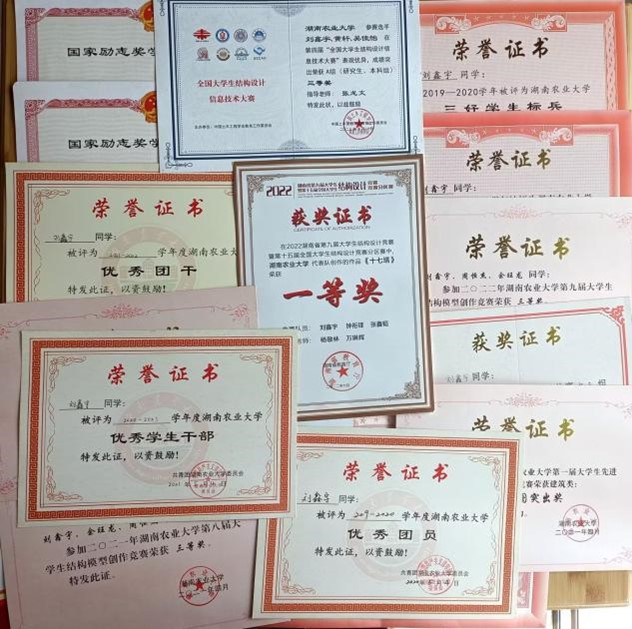 国家励志奖学
国家励志奖学
全国大学生结构设计
信息技术大赛
湖南农业大学 参赛选手
刘鑫宇,黄轩,吴佳怡 在
第四届"全国大学生结构设计信
息技术大赛"表现优异,成绩突
出荣获A组(研究生、本科组)
三等奖
特发此状,以兹鼓励
荣誉证书
刘鑫宇 同学:
2019—2020学年被评为湖南农业大学
三好学生标兵
荣誉证书
刘鑫宇 同学:
荣誉证书
刘鑫宇 同学:
被评为 学年度湖南农业大
优秀团干
特发此证,以资鼓励!
2022
结构设计
获奖证书
CERTIFICATE OF AUTHORIZATION
在2022湖南省第九届大学生结构设计竞赛
暨第十五届全国大学生结构设计竞赛分区赛中,
湖南农业大学 代表队创作的作品《十七塔》
荣获
一等奖
刘鑫宇 钟裕锋 张鑫韬
杨敬林 万娴辉
荣誉证书
刘鑫宇、周恒杰、金旺龙 同学:
参加二〇二二年湖南农业大学第九届大学生
结构模型创作竞赛荣获 三等奖.
获奖证书
刘鑫宇 同学:
荣誉证书
刘鑫宇 同学:
被评为 学年度湖南农业大学
优秀学生干部
特发此证,以资鼓励!
共青团湖南农业大学委员会
荣誉证书
农业大学第一届大学生先进
竞赛荣获建筑类:
突出奖
湖南农业大学
二〇二一年四月
荣誉证书
刘鑫宇 同学:
被评为 2019-2020 学年度湖南农业大学
优秀团员
特发此证,以资鼓励!
共青团湖南农业大学委员会
刘鑫宇、金旺龙、周恒
参加二〇二一年湖南农业大学第八届大
学生结构模型创作竞赛荣获 三等奖.
特发此证.
湖南农业大学
二〇二一年四月